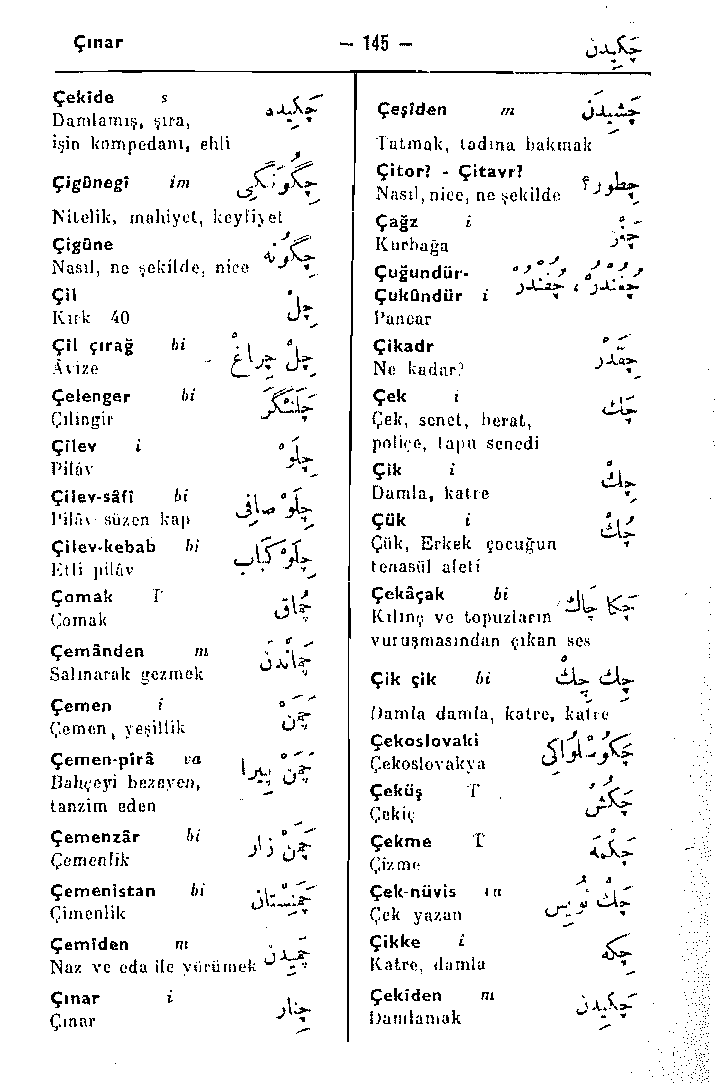 Çınar — 145 — چکیدن
Çekide s چکیده
Damlamış, şıra,
işin kompedanı, ehli
Çigûnegî im چگونگی
Nitelik, mahiyet, keyfiyet
Çigûne چگونه
Nasıl, ne şekilde, nice
Çil چِلْ
Kırk 40
Çil çırağ bi چِلْ چِراغْ
Âvize
Çelenger bi چَلَنْگَر
Çilingir
Çilev i چِلَوْ
Pilâv
Çilev-sâfî bi چِلَوْ صافی
Pilâv süzen kap
Çilev-kebab bi چِلَوْ کَباب
Etli pilâv
Çomak T چُماق
Çomak
Çemânden m چَمانْدَن
Salınarak gezmek
Çemen i چَمَنْ
Çemen, yeşillik
Çemen-pîrâ va چَمَنْ پیرا
Bahçeyi bezeyen,
tanzim eden
Çemenzâr bi چَمَنْ زار
Çemenlik
Çemenistan bi چَمَنِسْتان
Çimenlik
Çemîden m چَمیدَن
Naz ve eda ile yürümek
Çınar i چنار
Çınar
Çeşîden m چَشیدَن
Tatmak, tadına bakmak
Çitor? - Çitavr? چطور؟
Nasıl, nice, ne şekilde
Çağz i چَغْز
Kurbağa
Çuğundür- چُغُنْدُرْ، چُقُنْدُر
Çukûndür i
Pancar
Çikadr چِقَدْر
Ne kadar?
Çek i چَك
Çek, senet, berat,
poliçe, tapu senedi
Çik i چِكْ
Damla, katre
Çük i چُكْ
Çük, Erkek çocuğun
tenasül aleti
Çekâçak bi چَکا چاك
Kılınç ve topuzların
vuruşmasından çıkan ses
Çik çik bi چِك چِكْ
Damla damla, katre, katre
Çekoslovaki چکوسلواکی
Çekoslovakya
Çeküş T چَکُش
Çekiç
Çekme T چَکْمَه
Çizme
Çek-nüvis va چَكْ نُویس
Çek yazan
Çikke i چکه
Katre, damla
Çekîden m چَکیدن
Damlamak